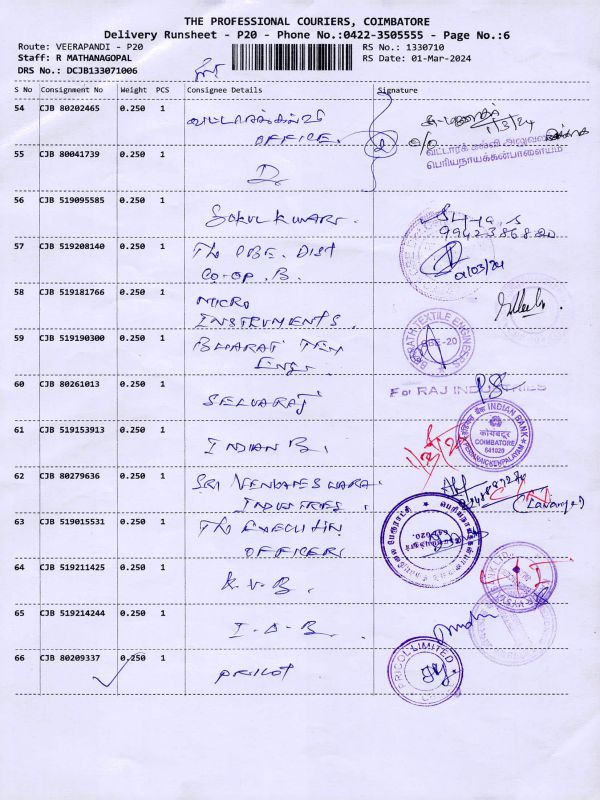 THE PROFESSIONAL COURIERS, COIMBATORE
Delivery Runsheet - P20 - Phone No.:0422-3505555 - Page No.:6
Route: VEERAPANDI - P20
RS No.: 1330710
Staff: R MATHANAGOPAL
RS Date: 01-Mar-2024
DRS No.: DCJB133071006
S No Consignment No Weight PCS Consignee Details Signature
54 CJB 80202465 0.250 1
OFFICE.
1/3/24
வட்டாரக் கல்வி அலுவலகம்
பெரியநாயக்கன்பாளையம்
55 CJB 80041739 0.250 1 D
56 CJB 519095585 0.250 1
GOKULKUMAR.
57 CJB 519208140 0.250 1 The CBE. DIST
CO-OP. B.
01/03/24
58 CJB 519181766 0.250 1 MICRO
INSTRUMENTS.
59 CJB 519190300 0.250 1 BHARAT TEX
ENGG.
BHARATH TEXTILE ENGINEERS
CBE-20
60 CJB 80261013 0.250 1
SELVARAJ
For RAJ INDUSTRIES
61 CJB 519153913 0.250 1
INDIAN B.
INDIAN BANK
कोयंबटूर
COIMBATORE
641020
62 CJB 80279636 0.250 1 SRI VENKATESWARA
INDUSTRIES.
(Lavanya)
63 CJB 519015531 0.250 1 The EXECUTIVE
OFFICER
64 CJB 519211425 0.250 1
K.V.B.
65 CJB 519214244 0.250 1
I.O.B.
66 CJB 80209337 0.250 1
PRICOL
PRICOL LIMITED